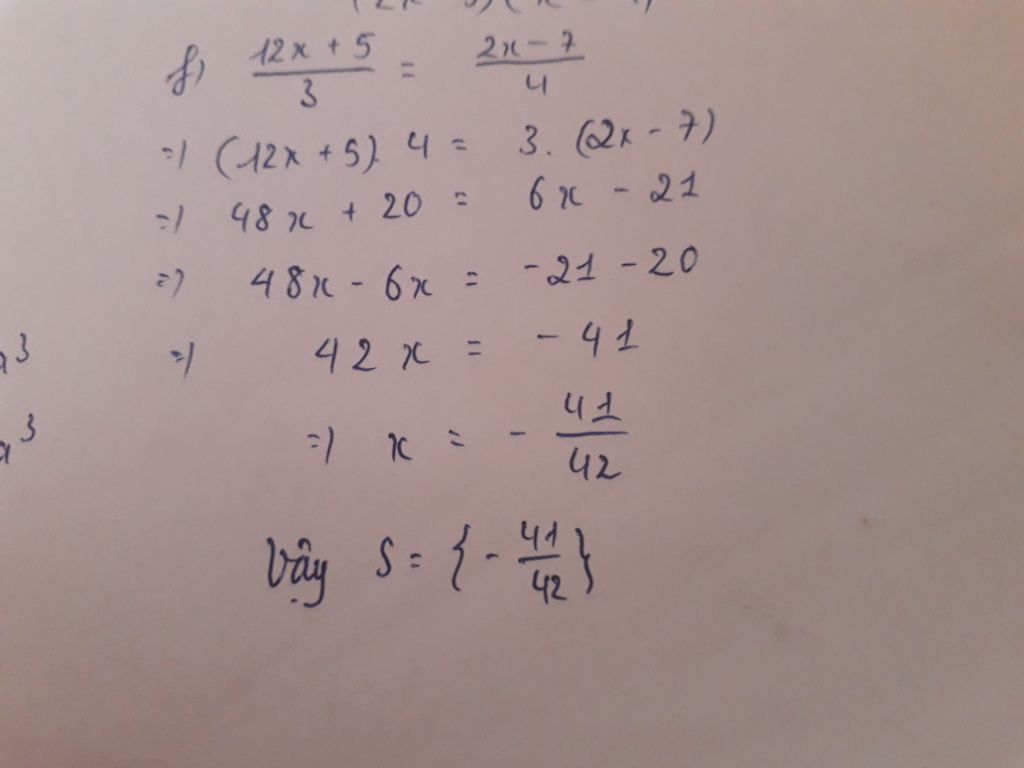 f) (12x + 5)/3 = (2x - 7)/4
=) (12x + 5). 4 = 3. (2x - 7)
=) 48x + 20 = 6x - 21
=) 48x - 6x = -21 - 20
=) 42x = -41
=) x = - 41/42
Vậy S = {- 41/42}